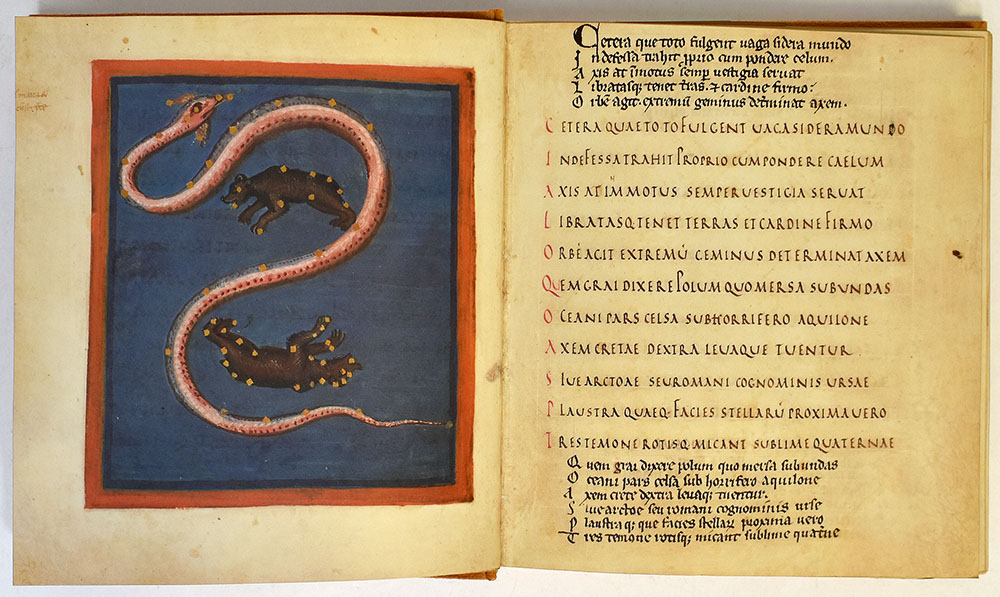 Cetera que toto fulgent vaga sidera mundo
Indefessa trahit pprio cum pondere celum.
Axis at imotus semp vestigia servat
Libratasq; tenet tras. & cardine firmo:
Orbē agit. extremū geminus detminat axem.
CETERA QUAE TOTO FULGENT UAGA SIDERA MUNDO
INDEFESSA TRAHIT PROPRIO CUM PONDERE CAELUM
AXIS AT IMMOTUS SEMPER UESTIGIA SERUAT
LIBRATASQ; TENET TERRAS ET CARDINE FIRMO
ORBĒ AGIT EXTREMŪ GEMINUS DETERMINAT AXEM
QUEM GRAI DIXERE POLUM QUO MERSA SUB UNDAS
OCEANI PARS CELSA SUB HORRIFERO AQUILONE
AXEM CRETAE DEXTRA LEUAQUE TUENTUR
SIUE ARCTOAE SEU ROMANI COGNOMINIS URSAE
PLAUSTRA QUAEQ; FACIES STELLARŪ PROXIMA UERO
TRES TEMONE ROTISQ; MICANT SUBLIME QUATERNAE
Quem grai dixere polum quo mersa sub undas
Oceani pars celsa sub horrifero aquilone
Axem crete dextra levaq; tuentur.
Sive arctoe seu romani cognominis urse
Plaustraq; que facies stellar proxima vero
Tres temone rotisq; micant sublime quatne